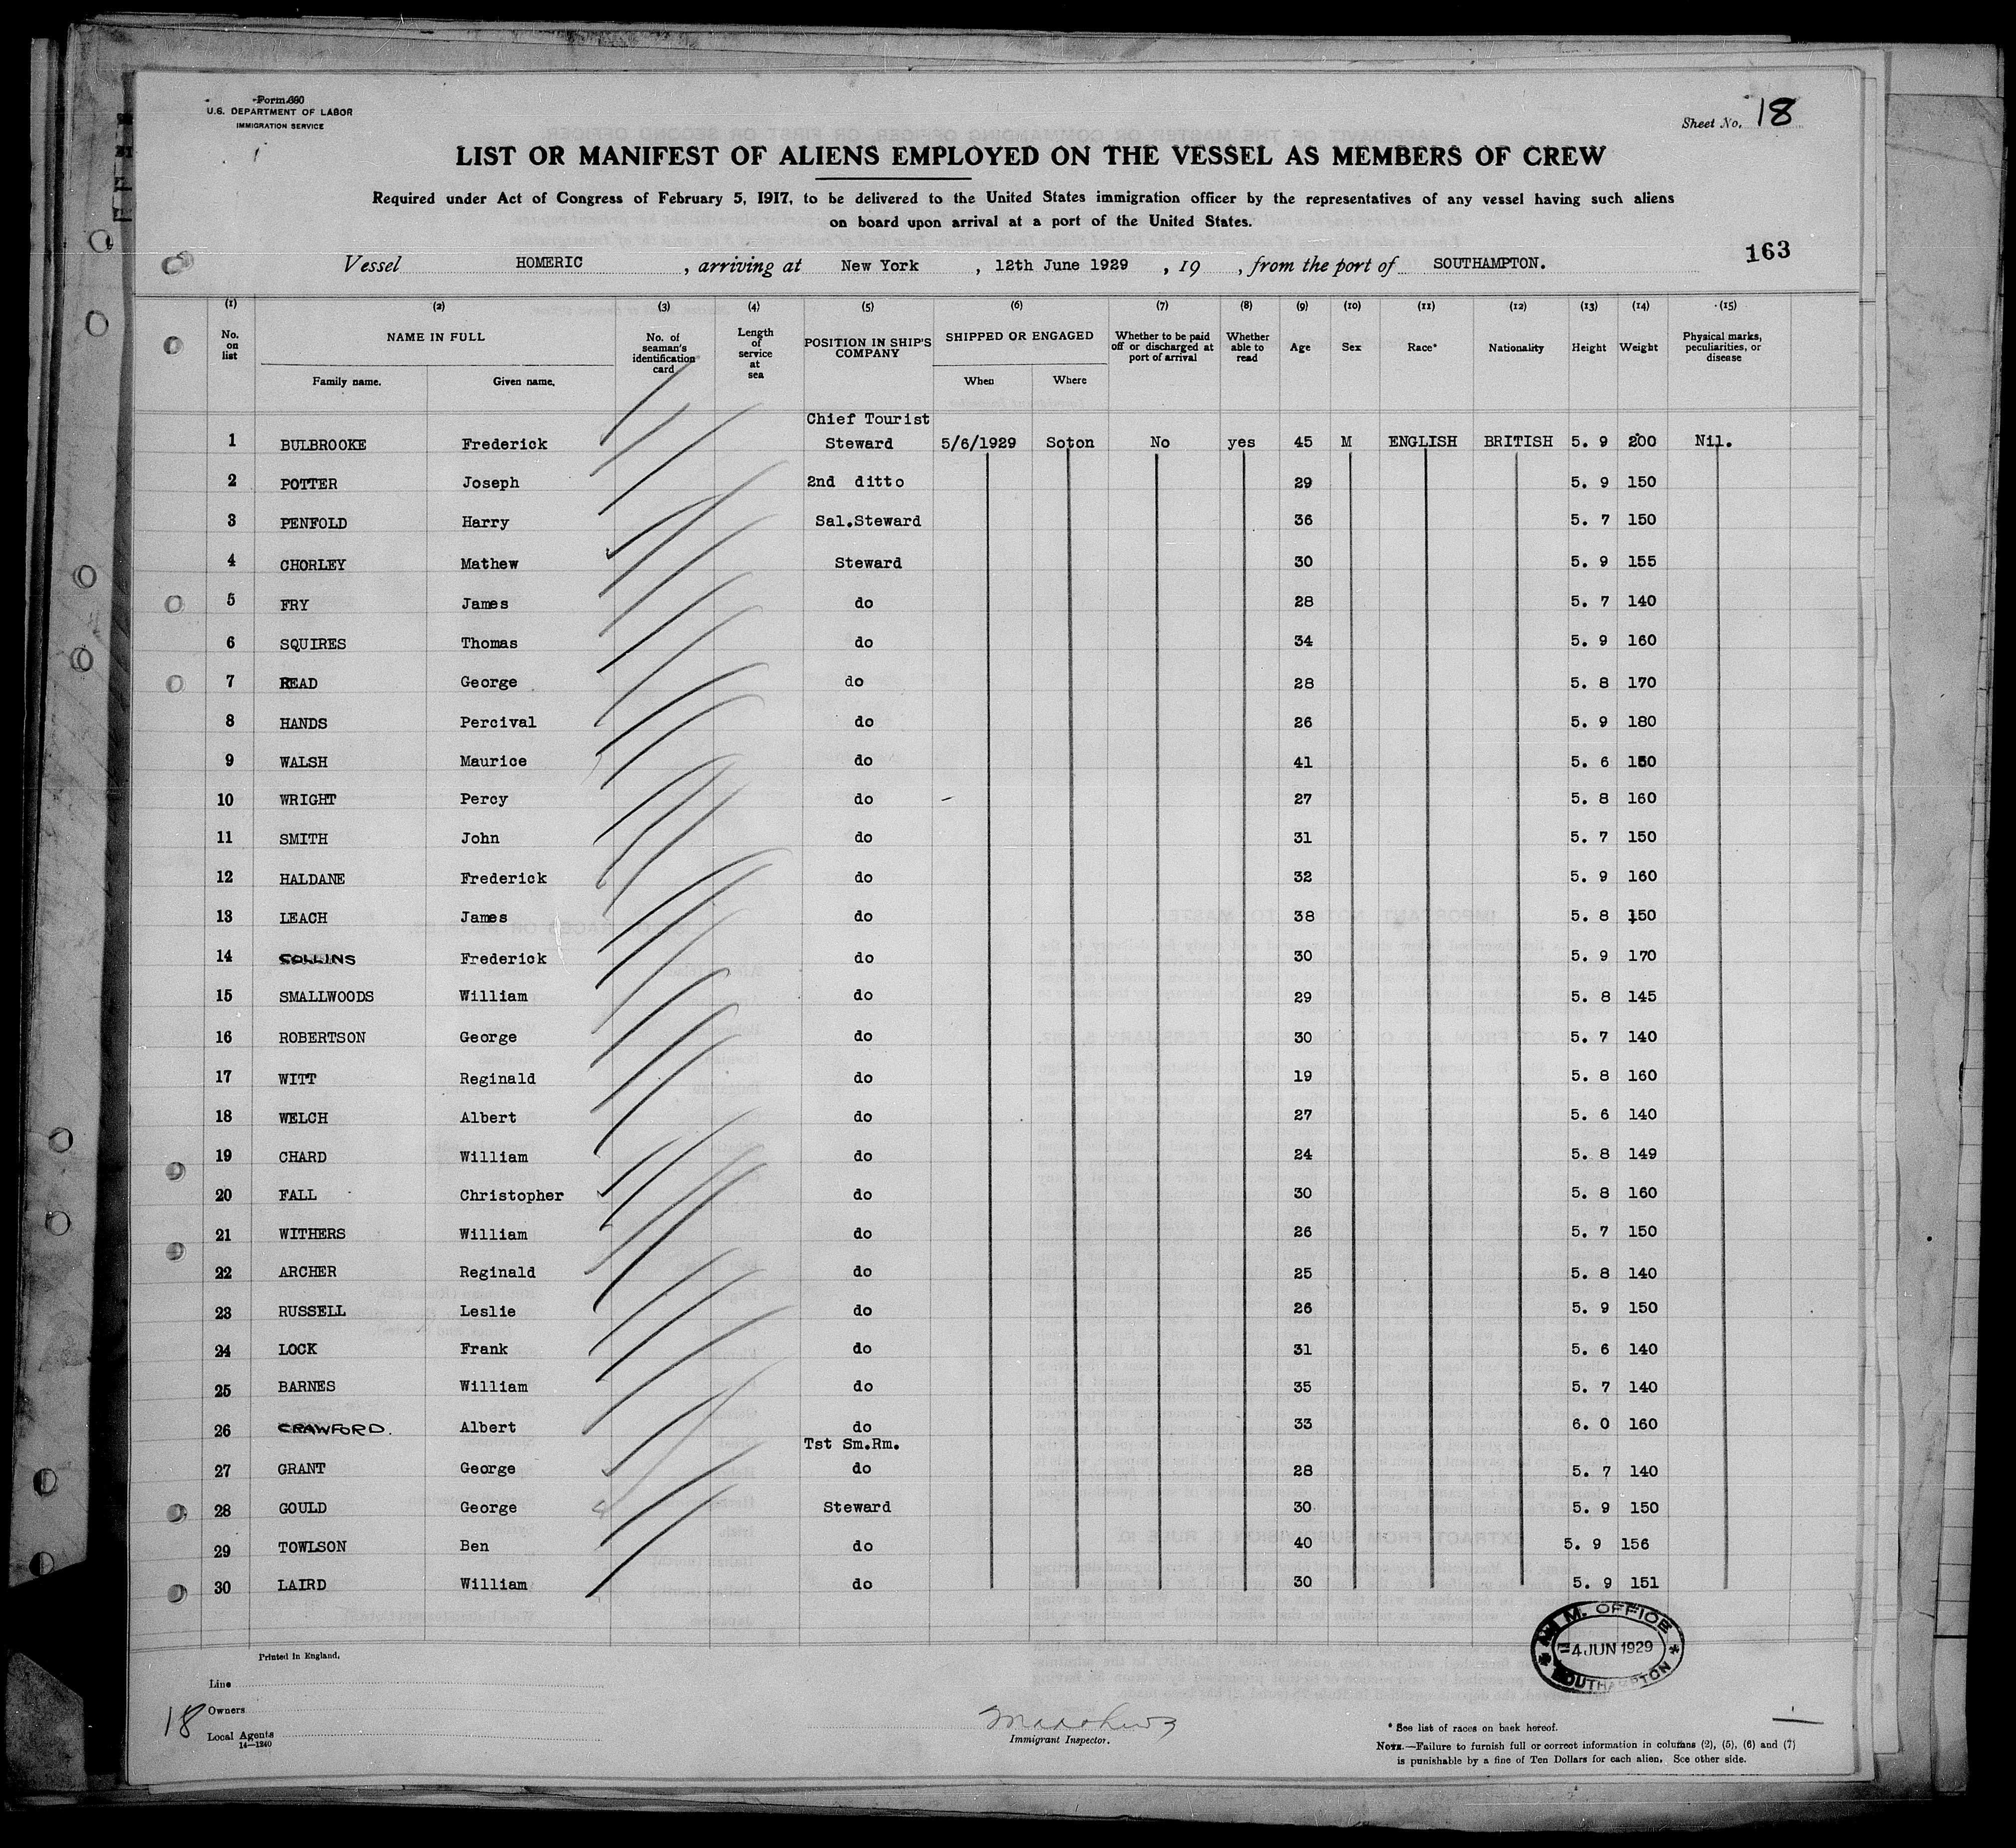 Form 680
U.S. DEPARTMENT OF LABOR
IMMIGRATION SERVICE
Sheet No. 18
LIST OR MANIFEST OF ALIENS EMPLOYED ON THE VESSEL AS MEMBERS OF CREW
Required under Act of Congress of February 5, 1917, to be delivered to the United States immigration officer by the representatives of any vessel having such aliens
on board upon arrival at a port of the United States.
163
Vessel HOMERIC , arriving at New York , 12th June 1929 , 19 , from the port of SOUTHAMPTON.
(1) (2) (3) (4) (5) (6) (7) (8) (9) (10) (11) (12) (13) (14) (15)
No. on list NAME IN FULL No. of seaman's identification card Length of service at sea POSITION IN SHIP'S COMPANY SHIPPED OR ENGAGED Whether to be paid off or discharged at port of arrival Whether able to read Age Sex Race* Nationality Height Weight Physical marks, peculiarities, or disease
Family name. Given name. When Where
Chief Tourist
1 BULBROOKE Frederick Steward 5/6/1929 Soton No yes 45 M ENGLISH BRITISH 5. 9 200 Nil.
2 POTTER Joseph 2nd ditto 29 5. 9 150
3 PENFOLD Harry Sal.Steward 36 5. 7 150
4 CHORLEY Mathew Steward 30 5. 9 155
5 FRY James do 28 5. 7 140
6 SQUIRES Thomas do 34 5. 9 160
7 READ George do 28 5. 8 170
8 HANDS Percival do 26 5. 9 180
9 WALSH Maurice do 41 5. 6 150
10 WRIGHT Percy do 27 5. 8 160
11 SMITH John do 31 5. 7 150
12 HALDANE Frederick do 32 5. 9 160
13 LEACH James do 38 5. 8 150
14 COLLINS Frederick do 30 5. 9 170
15 SMALLWOODS William do 29 5. 8 145
16 ROBERTSON George do 30 5. 7 140
17 WITT Reginald do 19 5. 8 160
18 WELCH Albert do 27 5. 6 140
19 CHARD William do 24 5. 8 149
20 FALL Christopher do 30 5. 8 160
21 WITHERS William do 26 5. 7 150
22 ARCHER Reginald do 25 5. 8 140
23 RUSSELL Leslie do 26 5. 9 150
24 LOCK Frank do 31 5. 6 140
25 BARNES William do 35 5. 7 140
26 CRAWFORD. Albert do 33 6. 0 160
Tst Sm.Rm.
27 GRANT George do 28 5. 7 140
28 GOULD George Steward 30 5. 9 150
29 TOWLSON Ben do 40 5. 9 156
30 LAIRD William do 30 5. 9 151
M. OFFICE
4 JUN 1929
SOUTHAMPTON
Printed in England.
Line
Owners
18
Local Agents
14—1240
Immigrant Inspector.
* See list of races on back hereof.
NOTE.—Failure to furnish full or correct information in columns (2), (5), (6) and (7)
is punishable by a fine of Ten Dollars for each alien. See other side.